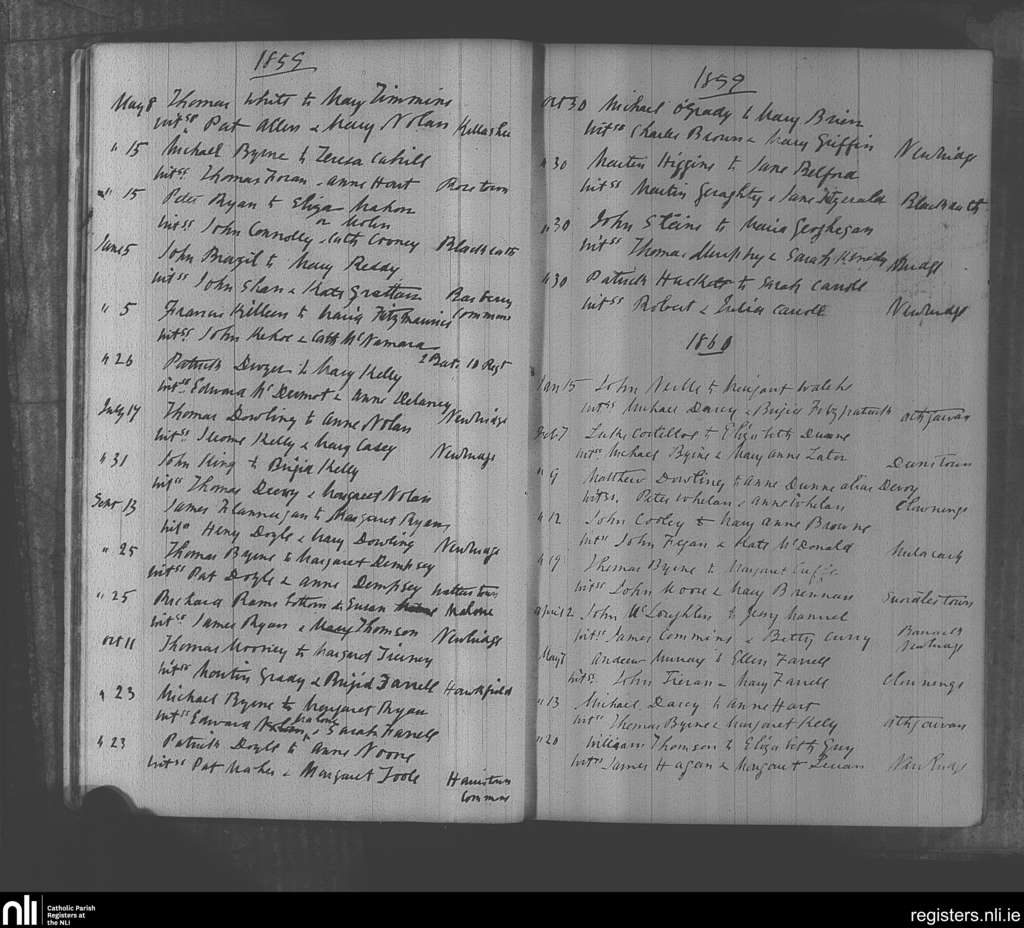 1859
May 8 Thomas White to Mary Timmins
witss Pat Allen & Mary Nolan
" 15 Michael Byrne to Teresa Cahill
witss Thomas Horan & Anne Hart Rosetown
" 15 Peter Ryan to Eliza Mahon
or
witss John Connolly & Cath Cooney
June 5 John Brazil to Mary Reddy
witss John Shan & Kate Grattan
" 5 Francis Killeen to Maria Fitzmaurice Commons
witss John Kehoe & Cath McNamara
2 Bat. 10 Regt
" 26 Patrick Dwyer to Mary Kelly
witss Edward McDermot & Anne Delaney Newbridge
July 17 Thomas Dowling to Anne Nolan
witss Jerome Kelly & Mary Casey Newbridge
" 31 John King to Brigid Kelly
witss Thomas Deevy & Margaret Nolan
Sept 13 James Flannagan to Margaret Ryan
witss Henry Doyle & Mary Dowling Newbridge
" 25 Thomas Byrne to Margaret Dempsey
witss Pat Doyle & Anne Dempsey Walterstown
" 25 Richard Ramsbottom to Susan Malone
witss James Ryan & Mary Thomson Newbridge
Oct 11 Thomas Mooney to Margaret Tierney
witss Martin Grady & Brigid Farrell Hawkfield
" 23 Michael Byrne to Margaret Ryan
witss Edward Malony & Sarah Farrell
" 23 Patrick Doyle to Anne Noone
witss Pat Maher & Margaret Toole
Commons
1859
Oct 30 Michael O'Grady to Mary Brien
witss Charles Brown & Mary Griffin Newbridge
" 30 Martin Higgins to Jane Belford
witss Martin Geraghty & Jane Fitzgerald
" 30 John Steins to Maria Geoghegan
witss Thomas Murphy & Sarah Kenedy
" 30 Patrick Hackett to Sarah Carroll
witss Robert & Julia Carroll Newbridge
1860
Jan 15 John Neille to Margaret Walshe
witss Michael Darcy & Brigid Fitzpatrick Athgarvan
Feb 7 Luke Costelloe to Elizabeth Dunne
witss Michael Byrne & Mary Anne Lalor Dunstown
" 9 Matthew Dowling to Anne Dunne alias Deevy
witss. Peter Whelan & Anne Whelan Clownings
" 12 John Cooley to Mary Anne Browne
witss John Fegan & Kate McDonald
" 19 Thomas Byrne to Margaret Cuffe
witss John Moore & Mary Brennan Swordlestown
April 2 John McLoughlin to Jenny
witss James Commins & Betty Curry Barracks
Newbridge
May 7 Andrew Murray to Ellen Farrell
witss John Tiernan & Mary Farrell Clownings
" 13 Michael Darcy to Anne Hart
witss Thomas Byrne & Margaret Kelly Athgarvan
" 20 William Thomson to Elizabeth Guy
witss James Hagan & Margaret Newbridge
nli
Catholic Parish
Registers at
the NLI
registers.nli.ie